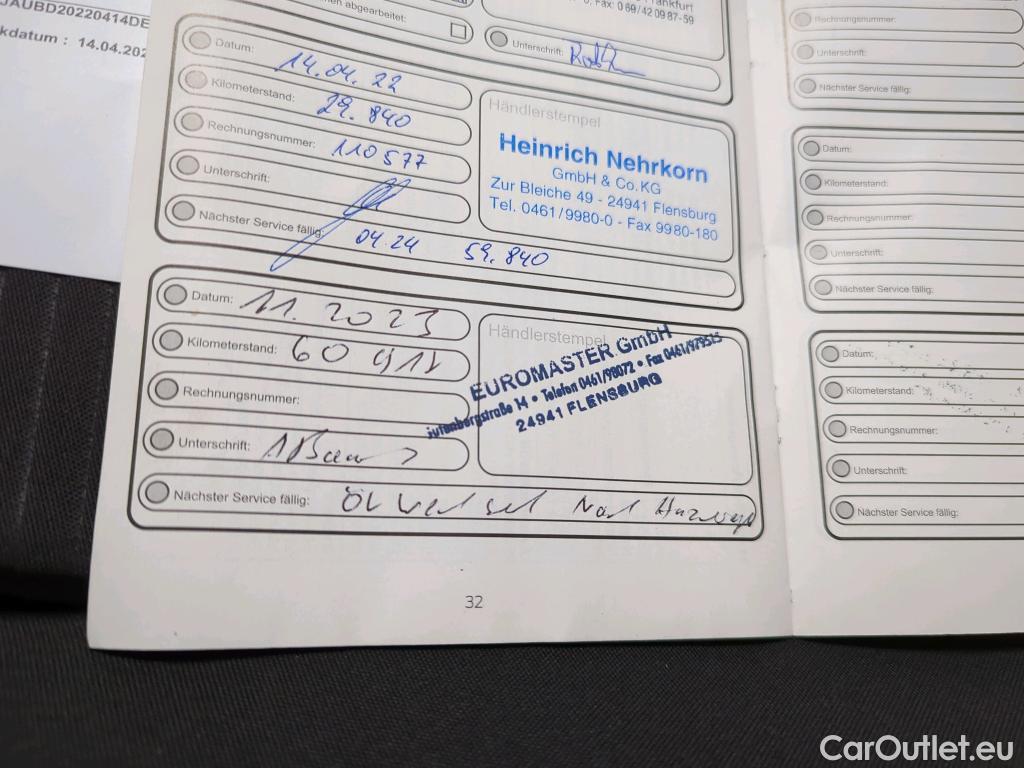 JAUBD20220414DE
kdatum : 14.04.202
abgearbeitet:
Frankfurt
Fax 069/42 09 87-59
Unterschrift:
Datum: 14.04.22
Kilometerstand: 29.840
Rechnungsnummer: 110577
Unterschrift:
Nächster Service fällig: 04.24 59.840
Händlerstempel
Heinrich Nehrkorn
GmbH & Co.KG
Zur Bleiche 49 - 24941 Flensburg
Tel. 0461/9980-0 - Fax 9980-180
Datum: 11.2023
Kilometerstand: 60 911
Rechnungsnummer:
Unterschrift:
Nächster Service fällig: Öl
Händlerstempel
EUROMASTER GmbH
14 • Telefon 0461/98072 • Fax 0461/979515
24941 FLENSBURG
32
Rechnungsnummer:
Unterschrift:
Nächster Service fällig:
Datum:
Kilometerstand:
Rechnungsnummer:
Unterschrift:
Nächster Service fällig:
Datum:
Kilometerstand:
Rechnungsnummer:
Unterschrift:
Nächster Service fällig:
CarOutlet.eu